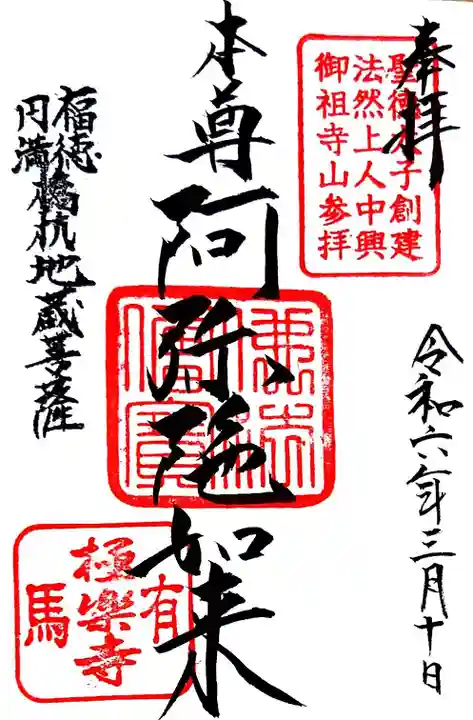 奉拝
聖徳太子創建
法然上人中興
御祖寺山参拝
令和六年三月十日
本尊阿弥陀如来
福徳
円満
橋杭地蔵菩薩
有
極樂寺
馬